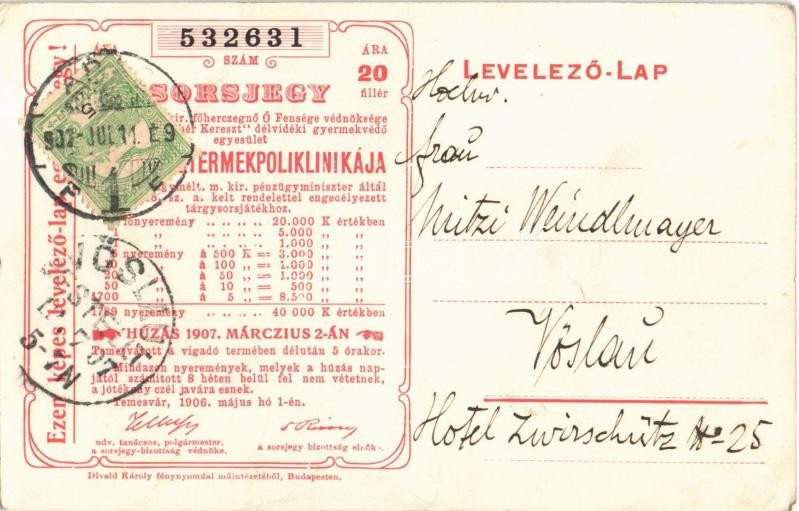 532631
SZÁM
ÁRA
ÁRA
20
fillér
SORSJEGY
kir. főherczegnő Ő Fensége védnöksége
Kereszt" délvidéki gyermekvédő
egyesület
TERMEKPOLIKLINIKÁJA
m. kir. pénzügyminister által
sz. a. kelt rendelettel engedélyezett
tárgysorsjátékhoz.
főnyeremény 20.000 K értékben
1 „ 5.000 „ „
„ 1.000 „ „
nyeremény à 500 K = 3.000 „ „
à 100 „ = 1.000 „ „
20 „ à 50 „ = 1.000 „ „
50 „ à 10 „ = 500 „ „
1700 „ à 5 „ = 8.500 „ „
1789 nyeremény 40 000 K értékben
HÚZÁS 1907. MÁRCZIUS 2-ÁN
Temesvárott a vigadó termében délután 5 órakor.
Mindazon nyeremények, melyek a húzás nap-
jától számított 8 héten belül fel nem vétetnek,
a jótékony czél javára esnek.
Temesvár, 1906. május hó 1-én.
udv. tanácsos, polgármester,
a sorsjegy-bizottság védnöke.
a sorsjegy bizottság elnöke.
Divald Károly fénynyomdai műintézetéből, Budapesten.
Ezen képes levelező-lap
907 JUL 11. E9
VÖSLAU
LEVELEZŐ-LAP
Hochw.
Frau
Mitzi Weindlmayer
Vöslau
Hotel Zwierschütz No 25